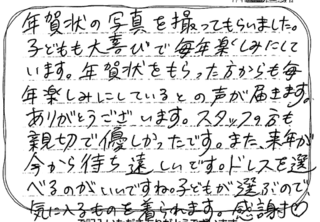 年賀状の写真を撮ってもらいました。
子どもも大喜びで毎年楽しみにして
います。年賀状をもらった方からも毎
年楽しみにしているとの声が届きます。
ありがとうございます。スタッフの方も
親切で優しかったです。また、来年が
今から待ち遠しいです。ドレスを選
べるのがいいですね。子どもが選ぶので
気に入るものを着られます。感謝!!